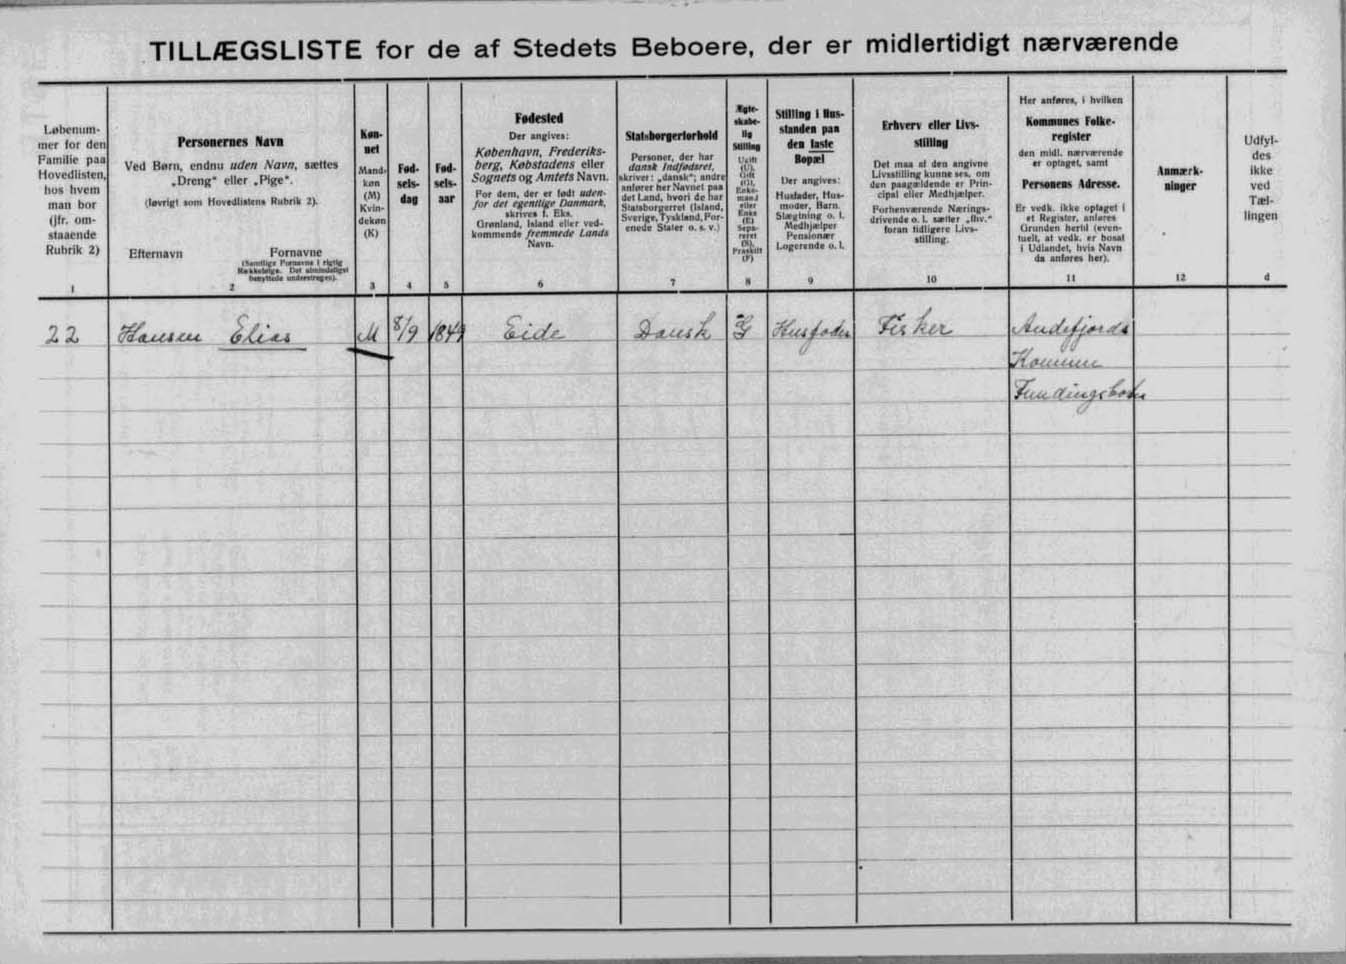 TILLÆGSLISTE for de af Stedets Beboere, der er midlertidigt nærværende
Løbenum-
mer for den
Familie paa
Hovedlisten,
hos hvem
man bor
(jfr. om-
staaende
Rubrik 2)
1
Personernes Navn
Ved Børn, endnu uden Navn, sættes
„Dreng“ eller „Pige“.
(Iøvrigt som Hovedlistens Rubrik 2).
Efternavn
Fornavne
(Samtlige Fornavne i rigtig
Rækkefølge. Det almindeligst
benyttede understreges).
2
Køn-
net
Mand-
køn
(M)
Kvin-
dekøn
(K)
3
Fød-
sels-
dag
4
Fød-
sels-
aar
5
Fødested
Der angives:
København, Frederiks-
berg, Købstadens eller
Sognets og Amtets Navn.
For dem, der er født uden-
for det egentlige Danmark,
skrives f. Eks.
Grønland, Island eller ved-
kommende fremmede Lands
Navn.
6
Statsborgerforhold
Personer, der har
dansk Indfødsret,
skriver: „dansk“; andre
anfører her Navnet paa
det Land, hvori de har
Statsborgerret (Island,
Sverige, Tyskland, For-
enede Stater o. s. v.)
7
Ægte-
skabe-
lig
Stilling
Ugift
(U),
Gift
(G),
Enke-
mand
eller
Enke
(E)
Sepa-
reret
(S),
Fraskilt
(F)
8
Stilling i Hus-
standen paa
den faste
Bopæl
Der angives:
Husfader, Hus-
moder, Barn,
Slægtning o. l.
Medhjælper
Pensionær
Logerende o. l.
9
Erhverv eller Livs-
stilling
Det maa af den angivne
Livsstilling kunne ses, om
den paagældende er Prin-
cipal eller Medhjælper.
Forhenværende Nærings-
drivende o. l. sætter „fhv.“
foran tidligere Livs-
stilling.
10
Her anføres, i hvilken
Kommunes Folke-
register
den midl. nærværende
er optaget, samt
Personens Adresse.
Er vedk. ikke optaget i
et Register, anføres
Grunden hertil (even-
tuelt, at vedk. er bosat
i Udlandet, hvis Navn
da anføres her).
11
Anmærk-
ninger
12
Udfyl-
des
ikke
ved
Tæl-
lingen
d
22 Hansen Elias M 8/9 1849 Eide Dansk G Husfader Fisker Andefjords
Kommun
Fundingsbotn